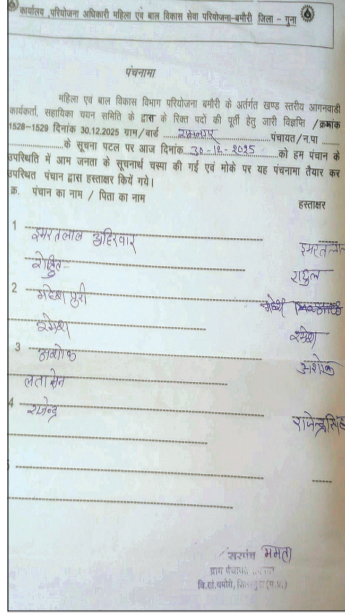 कार्यालय ,परियोजना अधिकारी महिला एवं बाल विकास सेवा परियोजना-बमौरी जिला - गुना
पंचनामा
महिला एवं बाल विकास विभाग परियोजना बमौरी के अंतर्गत खण्ड स्तरीय आगनवाडी
कार्यकर्ता, सहायिका चयन समिति के द्वारा के रिक्त पदों की पूर्ति हेतु जारी विज्ञप्ति /क्रमांक
1528-1529 दिनांक 30.12.2025 ग्राम/वार्ड पंचायत/न.पा
के सूचना पटल पर आज दिनांक 30-12-2025 को हम पंचान के
उपस्थिति में आम जनता के सूचनार्थ चस्पा की गई एवं मोके पर यह पंचनामा तैयार कर
उपस्थित पंचान द्वारा हस्ताक्षर किये गये।
क्र. पंचान का नाम / पिता का नाम हस्ताक्षर
1 इमरतलाल अहिरवार
राहुल
2 महेश पुरी
रमेश रमेश
3 अशोक अशोक
लता सेन
4 राजेन्द्र राजेन्द्रसिंह
सरपंच ममता
ग्राम पंचायत